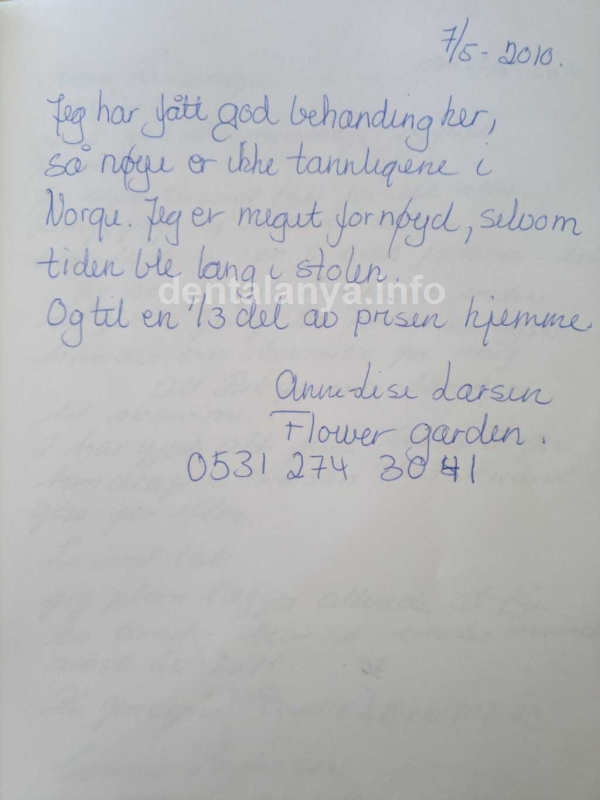 7/5-2010.
Jeg har fått god behanding her,
så nøye er ikke tannlegene i
Norge. Jeg er meget fornøyd, selvom
tiden ble lang i stolen.
dentalanya.info
Og til en 1/3 del av prisen hjemme.
Anne-Lise Larsen
Flower garden.
0531 274 30 41